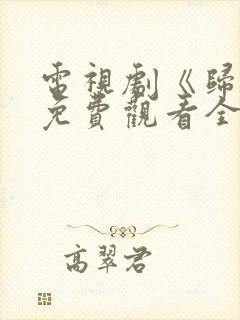 電視劇《歸
免費觀看全
高翠君